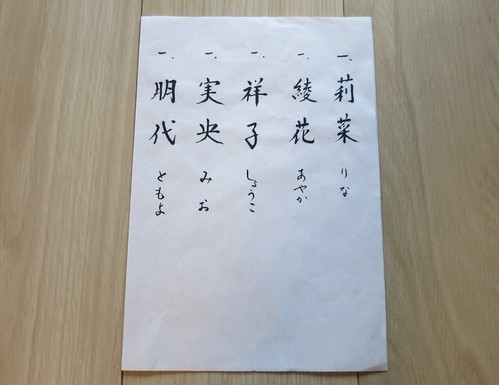 一、莉菜 りな
一、綾花 あやか
一、祥子 しょうこ
一、実央 みお
一、明代 ともよ